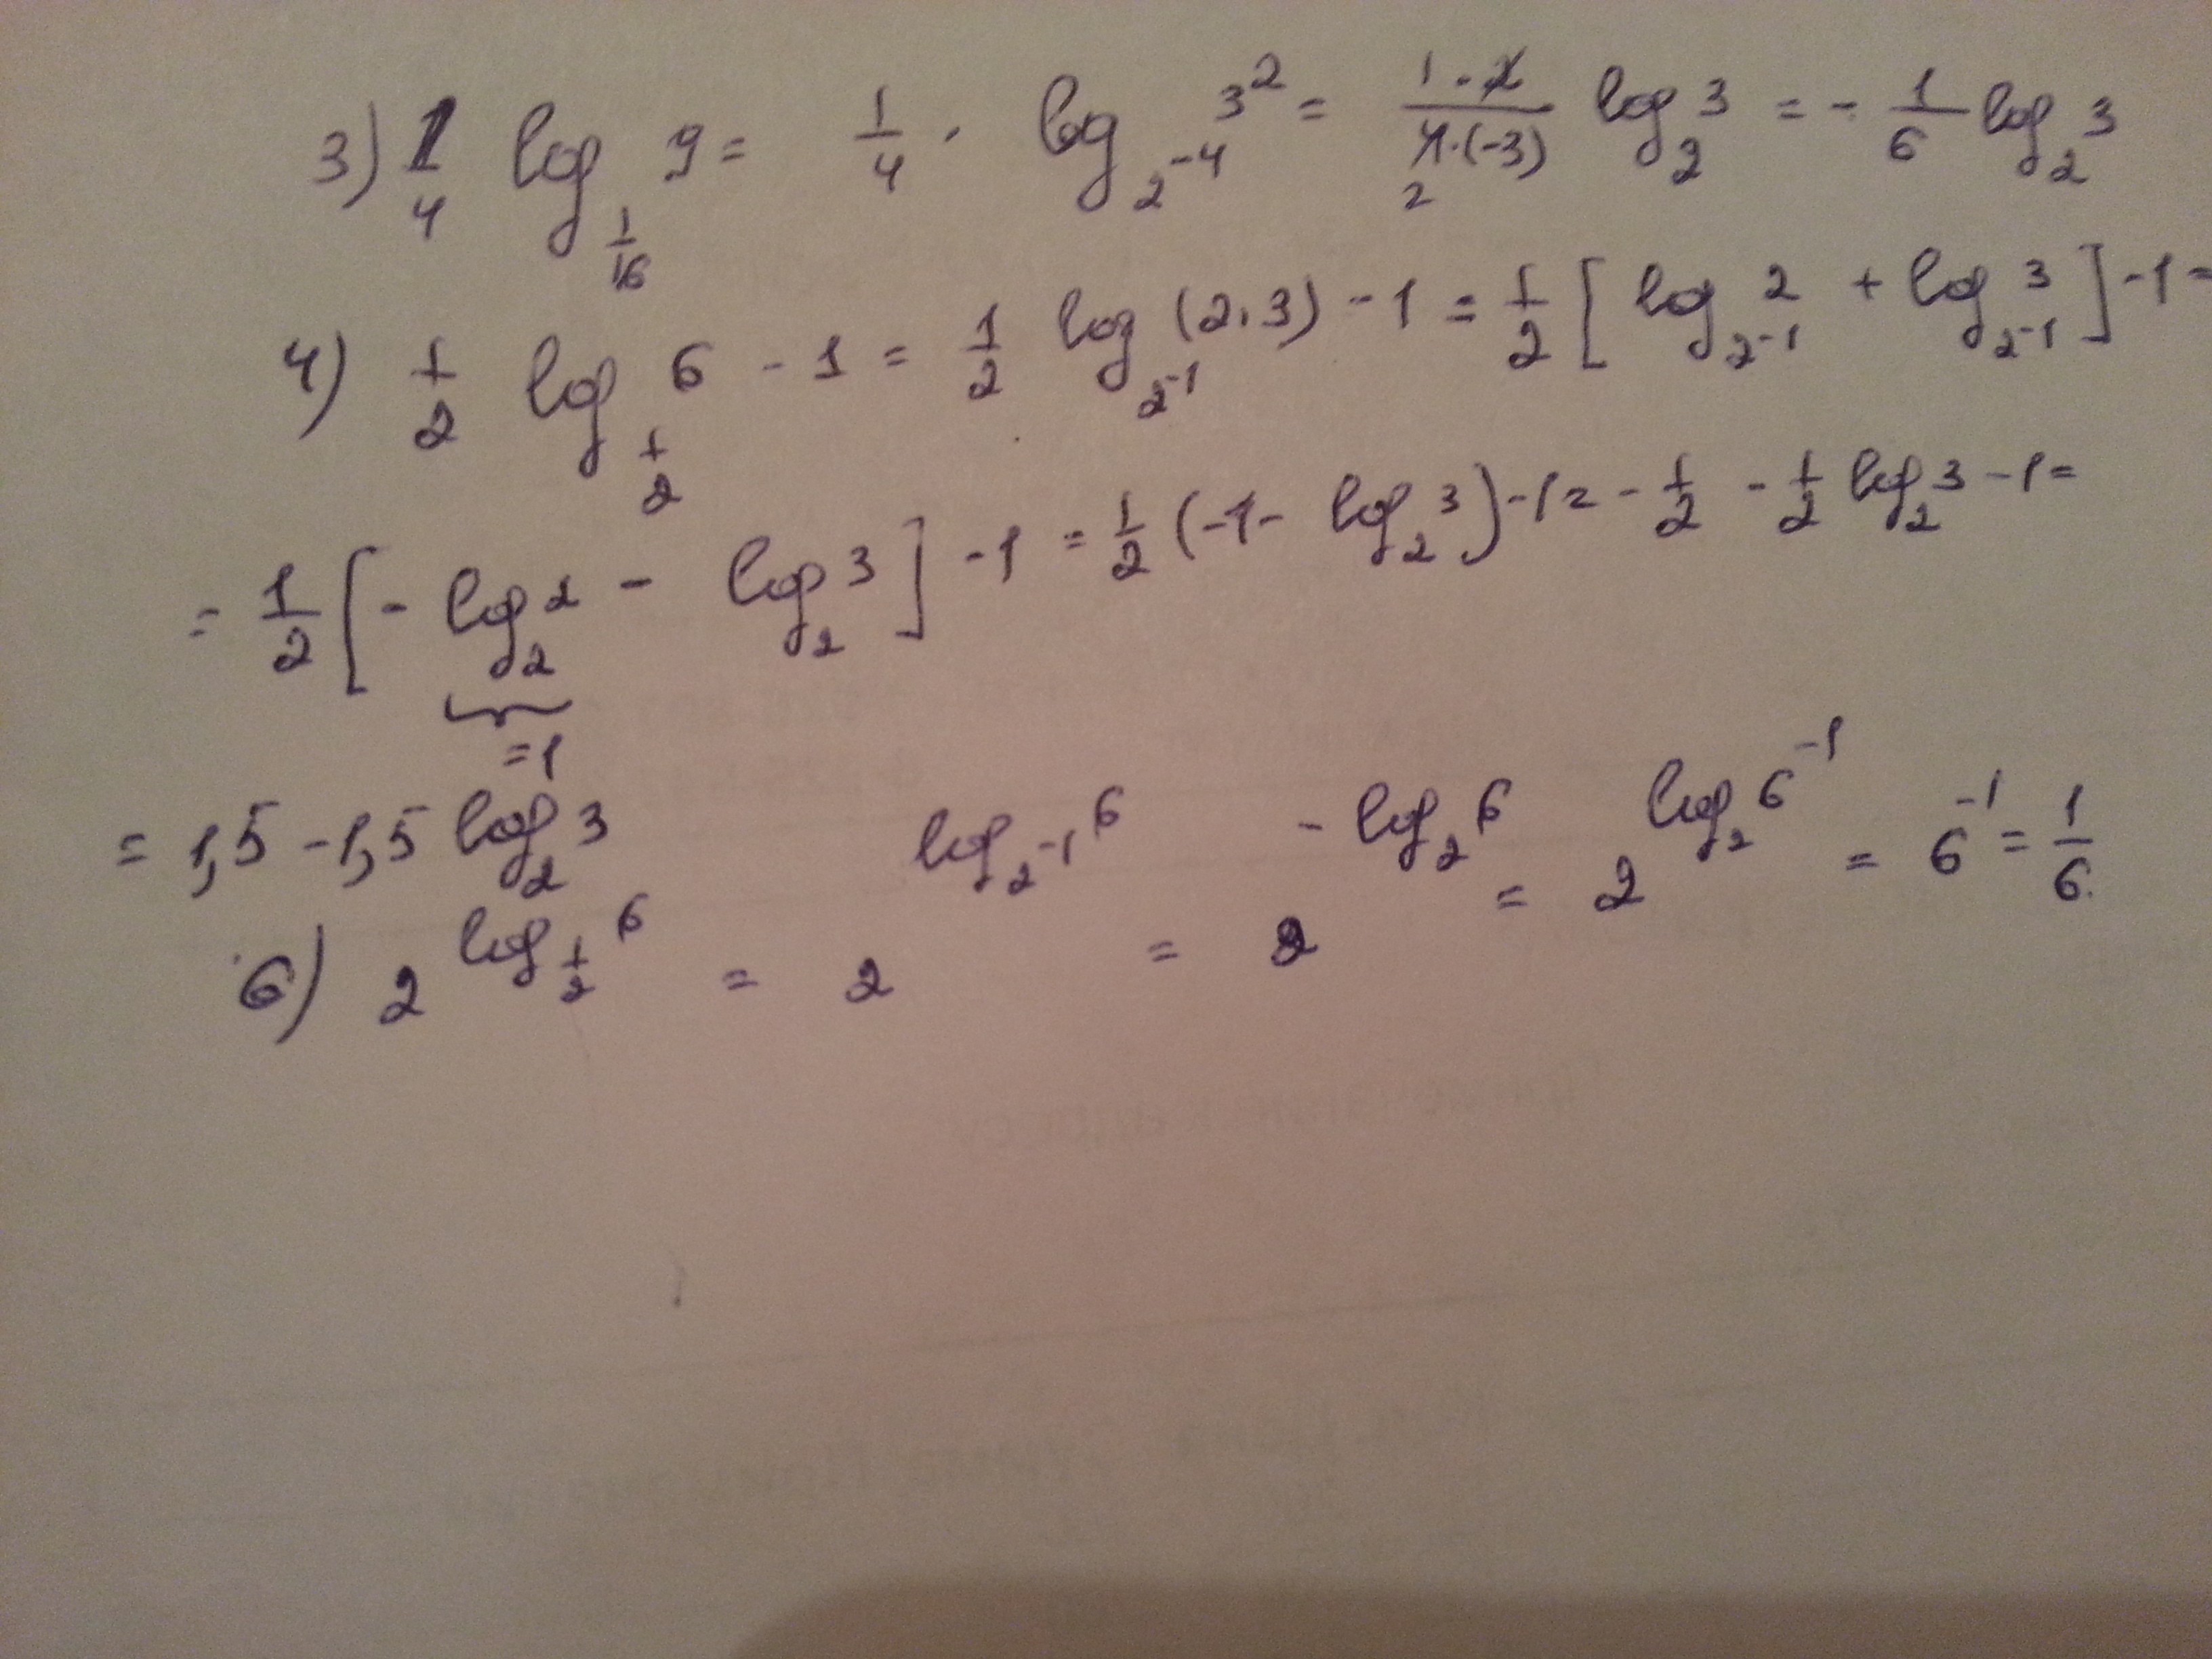 3) 1/4 log_{1/16} 9 = 1/4 · log_{2^{-4}} 3^2 = (1·2)/(4·(-3)) 2 log_2 3 = - 1/6 log_2 3
4) 1/2 log_{1/2} 6 - 1 = 1/2 log_{2^{-1}} (2·3) - 1 = 1/2 [ log_{2^{-1}} 2 + log_{2^{-1}} 3 ] - 1 =
= 1/2 [ - log_2 2 - log_2 3 ] - 1 = 1/2 (-1 - log_2 3) - 1 = - 1/2 - 1/2 log_2 3 - 1 =
= 1
= 1,5 - 1,5 log_2 3
6) 2^{log_{1/2} 6} = 2^{log_{2^{-1}} 6} = 2^{-log_2 6} = 2^{log_2 6^{-1}} = 6^{-1} = 1/6